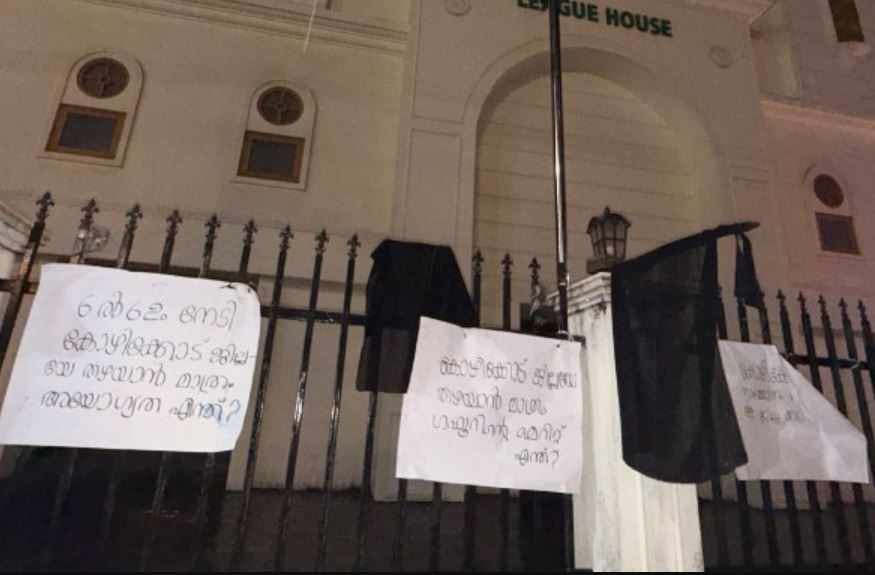 LEAGUE HOUSE
6 ൽ 6ഉം നേടി
കോഴിക്കോട് ജില്ല-
യെ തഴയാൻ മാത്രം
അയോഗ്യത എന്ത്?
കോഴിക്കോട് ജില്ലയെ
തഴയാൻ മാത്രം
ഗഫൂറിന്റെ മെറിറ്റ്
എന്ത്?